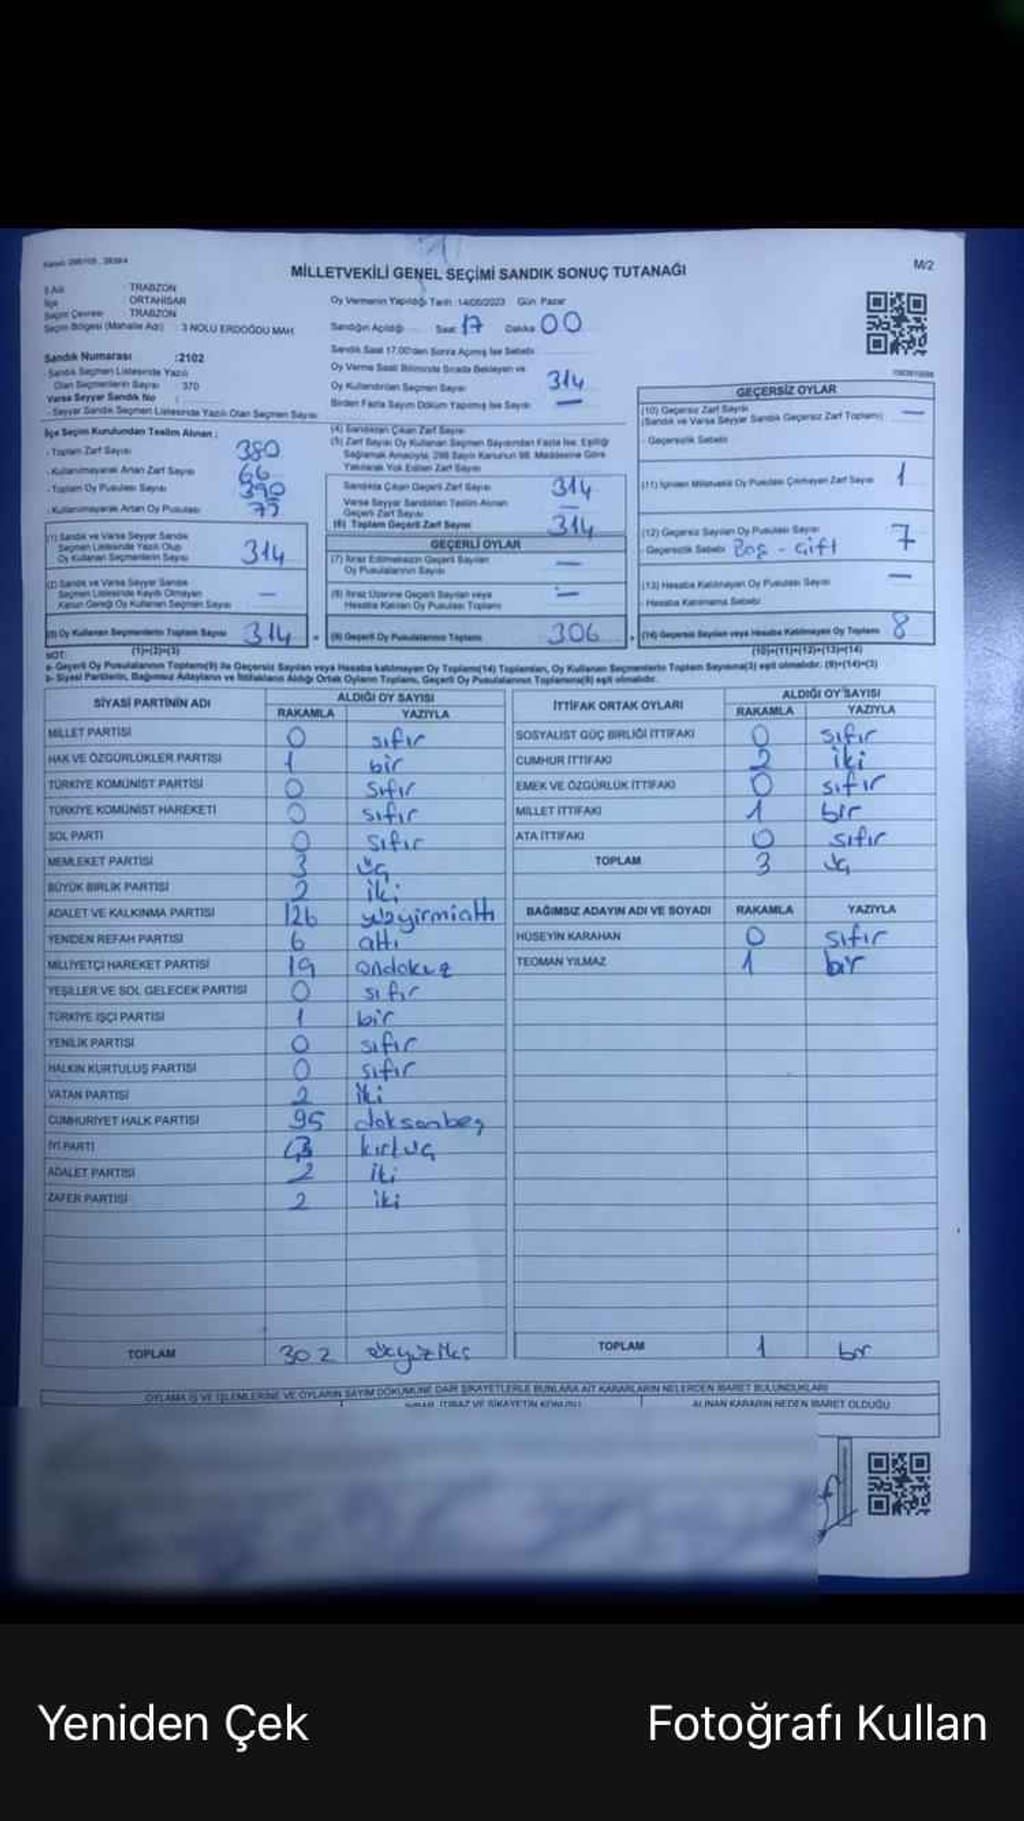 MİLLETVEKİLİ GENEL SEÇİMİ SANDIK SONUÇ TUTANAĞI
M/2
İl Adı TRABZON
İlçe ORTAHİSAR
Seçim Çevresi TRABZON
Seçim Bölgesi (Mahalle Adı) : 3 NOLU ERDOĞDU MAH.
Oy Vermenin Yapıldığı Tarih: 14/05/2023 Gün: Pazar
Sandığın Açıldığı Saat: 17 Dakika 00
Sandık Numarası :2102
- Sandık Seçmen Listesinde Yazılı
Olan Seçmenlerin Sayısı 370
Varsa Seyyar Sandık No :
- Seyyar Sandık Seçmen Listesinde Yazılı Olan Seçmen Sayısı
Sandık Saat 17.00'den Sonra Açılmış İse Sebebi
Oy Verme Saati Bitiminde Sırada Bekleyen ve
Oy Kullandırılan Seçmen Sayısı 314
Birden Fazla Sayım Döküm Yapılmış İse Sayısı —
İlçe Seçim Kurulundan Teslim Alınan ;
- Toplam Zarf Sayısı 380
- Kullanılmayarak Artan Zarf Sayısı 66
- Toplam Oy Pusulası Sayısı 390
- Kullanılmayarak Artan Oy Pusulası
(1) Sandık ve Varsa Seyyar Sandık
Seçmen Listesinde Yazılı Olup
Oy Kullanan Seçmenlerin Sayısı 314
(2) Sandık ve Varsa Seyyar Sandık
Seçmen Listesinde Kaydı Olmayan
Kanun Gereği Oy Kullanan Seçmen Sayısı —
(3) Oy Kullanan Seçmenlerin Toplam Sayısı 314
(1)+(2)=(3)
(4) Sandıktan Çıkan Zarf Sayısı
(5) Zarf Sayısı Oy Kullanan Seçmen Sayısından Fazla İse, Eşitliği
Sağlamak Amacıyla, 298 Sayılı Kanunun 98. Maddesine Göre
Yakılarak Yok Edilen Zarf Sayısı
Sandıkta Çıkan Geçerli Zarf Sayısı 314
Varsa Seyyar Sandıktan Teslim Alınan
Geçerli Zarf Sayısı —
(6) Toplam Geçerli Zarf Sayısı 314
GEÇERLİ OYLAR
(7) İtiraz Edilmeksizin Geçerli Sayılan
Oy Pusulalarının Sayısı —
(8) İtiraz Üzerine Geçerli Sayılan veya
Hesaba Katılan Oy Pusulası Toplamı —
(9) Geçerli Oy Pusulalarının Toplamı 306
GEÇERSİZ OYLAR
(10) Geçersiz Zarf Sayısı —
(Sandık ve Varsa Seyyar Sandık Geçersiz Zarf Toplamı)
- Geçersizlik Sebebi
(11) İçinden Milletvekili Oy Pusulası Çıkmayan Zarf Sayısı 1
(12) Geçersiz Sayılan Oy Pusulası Sayısı 7
- Geçersizlik Sebebi Boş - Çift
(13) Hesaba Katılmayan Oy Pusulası Sayısı —
- Hesaba Katılmama Sebebi
(14) Geçersiz Sayılan veya Hesaba Katılmayan Oy Toplamı 8
(10)+(11)+(12)+(13)=(14)
NOT:
a- Geçerli Oy Pusulalarının Toplamı(9) ile Geçersiz Sayılan veya Hesaba katılmayan Oy Toplamı(14) Toplamları, Oy Kullanan Seçmenlerin Toplam Sayısına(3) eşit olmalıdır. (9)+(14)=(3)
b- Siyasi Partilerin, Bağımsız Adayların ve İttifakların Aldığı Ortak Oyların Toplamı, Geçerli Oy Pusulalarının Toplamına(9) eşit olmalıdır.
SİYASİ PARTİNİN ADI ALDIĞI OY SAYISI
RAKAMLA YAZIYLA
MİLLET PARTİSİ 0 sıfır
HAK VE ÖZGÜRLÜKLER PARTİSİ 1 bir
TÜRKİYE KOMÜNİST PARTİSİ 0 sıfır
TÜRKİYE KOMÜNİST HAREKETİ 0 sıfır
SOL PARTİ 0 sıfır
MEMLEKET PARTİSİ 3 üç
BÜYÜK BİRLİK PARTİSİ 2 iki
ADALET VE KALKINMA PARTİSİ 126 yüzyirmialtı
YENİDEN REFAH PARTİSİ 6 altı
MİLLİYETÇİ HAREKET PARTİSİ 19 ondokuz
YEŞİLLER VE SOL GELECEK PARTİSİ 0 sıfır
TÜRKİYE İŞÇİ PARTİSİ 1 bir
YENİLİK PARTİSİ 0 sıfır
HALKIN KURTULUŞ PARTİSİ 0 sıfır
VATAN PARTİSİ 2 iki
CUMHURİYET HALK PARTİSİ 95 doksanbeş
İYİ PARTİ 43 kırküç
ADALET PARTİSİ 2 iki
ZAFER PARTİSİ 2 iki
TOPLAM 302
İTTİFAK ORTAK OYLARI ALDIĞI OY SAYISI
RAKAMLA YAZIYLA
SOSYALİST GÜÇ BİRLİĞİ İTTİFAKI 0 sıfır
CUMHUR İTTİFAKI 2 iki
EMEK VE ÖZGÜRLÜK İTTİFAKI 0 sıfır
MİLLET İTTİFAKI 1 bir
ATA İTTİFAKI 0 sıfır
TOPLAM 3 üç
BAĞIMSIZ ADAYIN ADI VE SOYADI RAKAMLA YAZIYLA
HÜSEYİN KARAHAN 0 sıfır
TEOMAN YILMAZ 1 bir
TOPLAM 1 bir
OYLAMA İŞ VE İŞLEMLERİNE VE OYLARIN SAYIM DÖKÜMÜNE DAİR ŞİKAYETLERLE BUNLARA AİT KARARLARIN NELERDEN İBARET BULUNDUKLARI
İTİRAZ VE ŞİKAYETİN KONUSU ALINAN KARARIN NEDEN İBARET OLDUĞU
Yeniden Çek Fotoğrafı Kullan